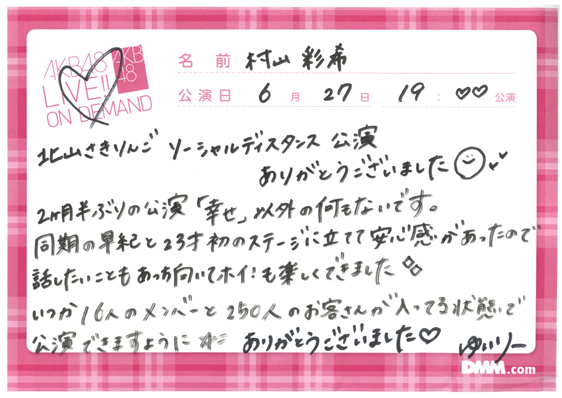 AKB48
LIVE!!
ON DEMAND
AKB
48
名前 村山 彩希
公演日 6月27日 19:♡♡公演
北山さきりんご ソーシャルディスタンス 公演
ありがとうございました
2ヶ月半ぶりの公演「幸せ」以外の何もないです。
同期の早紀と23才初のステージに立てて安心感があったので
話したいこともあっち向いてホイ!も楽しくできました
いつか16人のメンバーと250人のお客さんが入ってる状態で
公演できますように ありがとうございました♡
ゆいりー
DMM.com